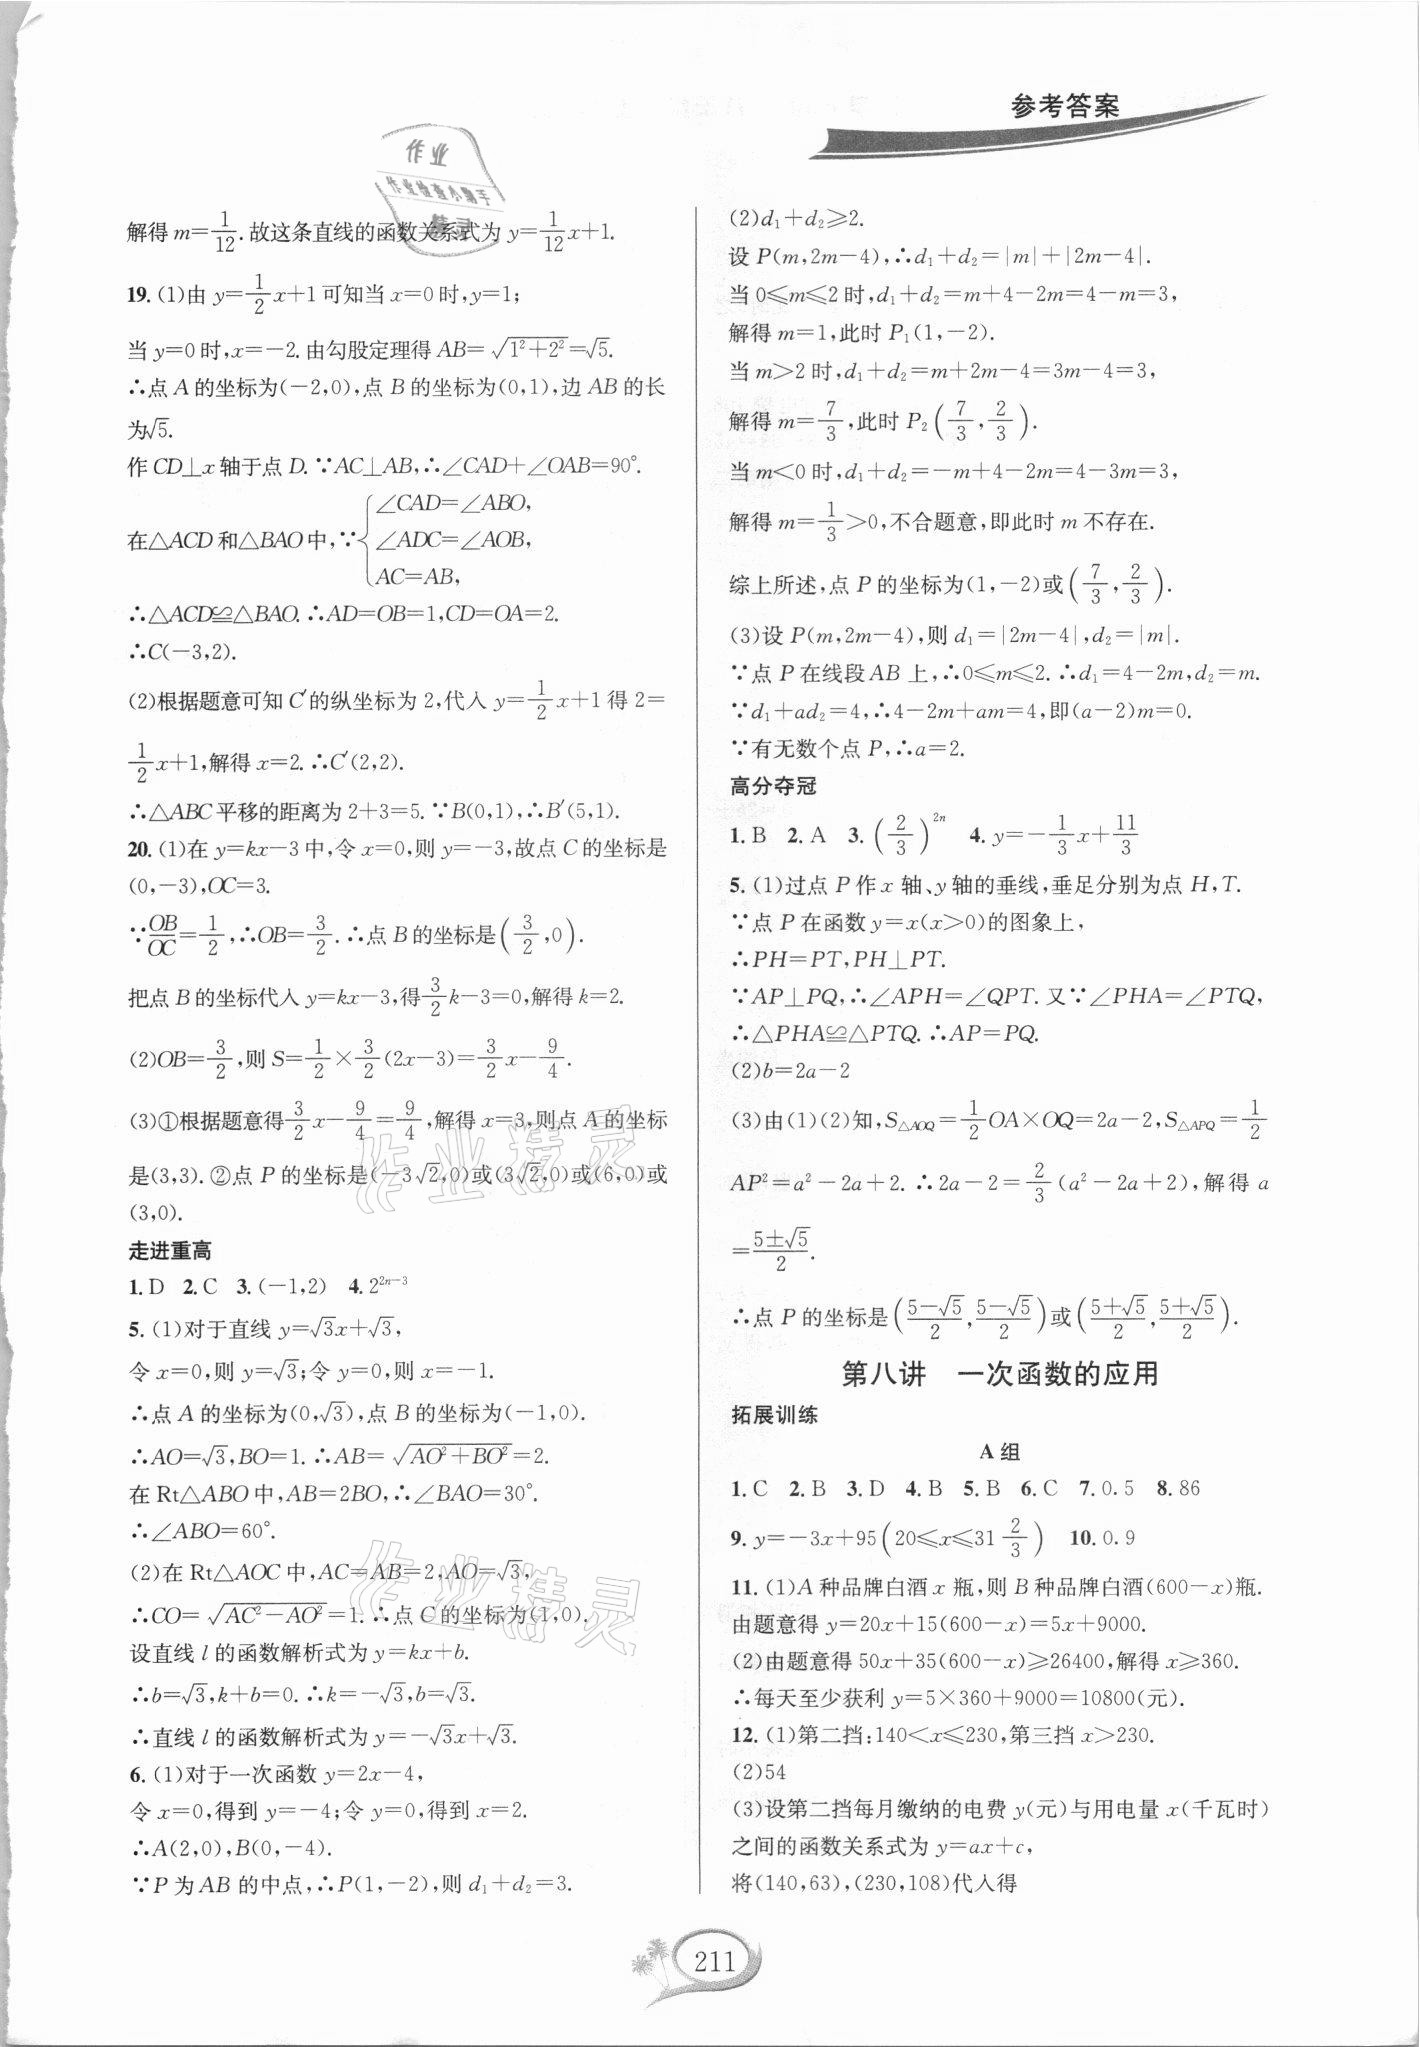 参考答案
作业
作业检查小助手
精灵
解得 m=1/12. 故这条直线的函数关系式为 y=1/12x+1.
19. (1)由 y=1/2x+1 可知当 x=0 时,y=1;
当 y=0 时,x=-2. 由勾股定理得 AB=√(1²+2²)=√5.
∴点 A 的坐标为(-2,0),点 B 的坐标为(0,1),边 AB 的长
为√5.
作 CD⊥x 轴于点 D. ∵AC⊥AB,∴∠CAD+∠OAB=90°.
∠CAD=∠ABO,
在△ACD 和△BAO 中,∵{∠ADC=∠AOB,
AC=AB,
∴△ACD≌△BAO. ∴AD=OB=1,CD=OA=2.
∴C(-3,2).
(2)根据题意可知 C′的纵坐标为 2,代入 y=1/2x+1 得 2=
1/2x+1,解得 x=2. ∴C′(2,2).
∴△ABC 平移的距离为 2+3=5. ∵B(0,1),∴B′(5,1).
20. (1)在 y=kx-3 中,令 x=0,则 y=-3,故点 C 的坐标是
(0,-3),OC=3.
∵OB/OC=1/2,∴OB=3/2. ∴点 B 的坐标是(3/2,0).
把点 B 的坐标代入 y=kx-3,得3/2k-3=0,解得 k=2.
(2)OB=3/2,则 S=1/2×3/2(2x-3)=3/2x-9/4.
(3)①根据题意得3/2x-9/4=9/4,解得 x=3,则点 A 的坐标
是(3,3). ②点 P 的坐标是(-3√2,0)或(3√2,0)或(6,0)或
(3,0).
走进重高
1. D 2. C 3. (-1,2) 4. 2²ⁿ⁻³
5. (1)对于直线 y=√3x+√3,
令 x=0,则 y=√3;令 y=0,则 x=-1.
∴点 A 的坐标为(0,√3),点 B 的坐标为(-1,0).
∴AO=√3,BO=1. ∴AB=√(AO²+BO²)=2.
在 Rt△ABO 中,AB=2BO,∴∠BAO=30°.
∴∠ABO=60°.
(2)在 Rt△AOC 中,AC=AB=2,AO=√3,
∴CO=√(AC²-AO²)=1. ∴点 C 的坐标为(1,0).
设直线 l 的函数解析式为 y=kx+b.
∴b=√3,k+b=0. ∴k=-√3,b=√3.
∴直线 l 的函数解析式为 y=-√3x+√3.
6. (1)对于一次函数 y=2x-4,
令 x=0,得到 y=-4;令 y=0,得到 x=2.
∴A(2,0),B(0,-4).
∵P 为 AB 的中点,∴P(1,-2),则 d₁+d₂=3.
(2)d₁+d₂≥2.
设 P(m,2m-4),∴d₁+d₂=|m|+|2m-4|.
当 0≤m≤2 时,d₁+d₂=m+4-2m=4-m=3,
解得 m=1,此时 P₁(1,-2).
当 m>2 时,d₁+d₂=m+2m-4=3m-4=3,
解得 m=7/3,此时 P₂(7/3,2/3).
当 m<0 时,d₁+d₂=-m+4-2m=4-3m=3,
解得 m=1/3>0,不合题意,即此时 m 不存在.
综上所述,点 P 的坐标为(1,-2)或(7/3,2/3).
(3)设 P(m,2m-4),则 d₁=|2m-4|,d₂=|m|.
∵点 P 在线段 AB 上,∴0≤m≤2. ∴d₁=4-2m,d₂=m.
∵d₁+ad₂=4,∴4-2m+am=4,即(a-2)m=0.
∵有无数个点 P,∴a=2.
高分夺冠
1. B 2. A 3. (2/3)²ⁿ 4. y=-1/3x+11/3
5. (1)过点 P 作 x 轴、y 轴的垂线,垂足分别为点 H,T.
∵点 P 在函数 y=x(x>0)的图象上,
∴PH=PT,PH⊥PT.
∵AP⊥PQ,∴∠APH=∠QPT. 又∵∠PHA=∠PTQ,
∴△PHA≌△PTQ. ∴AP=PQ.
(2)b=2a-2
(3)由(1)(2)知,S△AOQ=1/2OA×OQ=2a-2,S△APQ=1/2
AP²=a²-2a+2. ∴2a-2=2/3(a²-2a+2),解得 a
=(5±√5)/2.
∴点 P 的坐标是((5-√5)/2,(5-√5)/2)或((5+√5)/2,(5+√5)/2).
第八讲 一次函数的应用
拓展训练
A 组
1. C 2. B 3. D 4. B 5. B 6. C 7. 0.5 8. 86
9. y=-3x+95(20≤x≤31 2/3) 10. 0.9
11. (1)A 种品牌白酒 x 瓶,则 B 种品牌白酒(600-x)瓶.
由题意得 y=20x+15(600-x)=5x+9000.
(2)由题意得 50x+35(600-x)≥26400,解得 x≥360.
∴每天至少获利 y=5×360+9000=10800(元).
12. (1)第二挡:140<x≤230,第三挡 x>230.
(2)54
(3)设第二挡每月缴纳的电费 y(元)与用电量 x(千瓦时)
之间的函数关系式为 y=ax+c,
将(140,63),(230,108)代入得
作业精灵
作业精灵
211